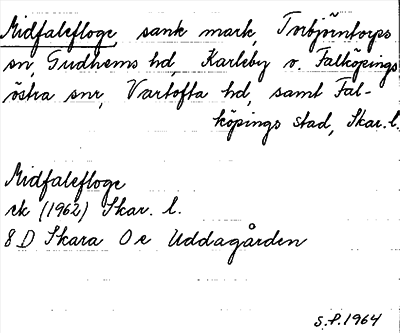 Midfalefloge sank mark, Torbjörntorps
sn, Gudhems hd, Karleby o. Falköpings
östra snr, Vartofta hd, samt Fal-
köpings stad, Skar. l.
Midfalefloge
ek (1962) Skar. l.
8D Skara Oe Uddagården
S.P. 1964